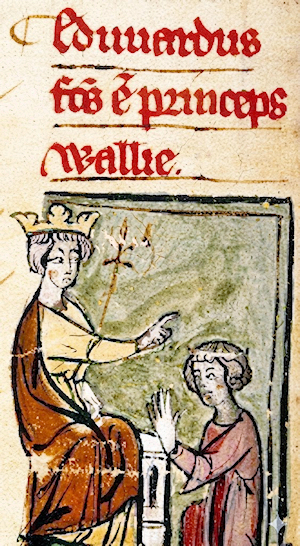 Edwardus
fcs̄ ē princeps
Wallie.